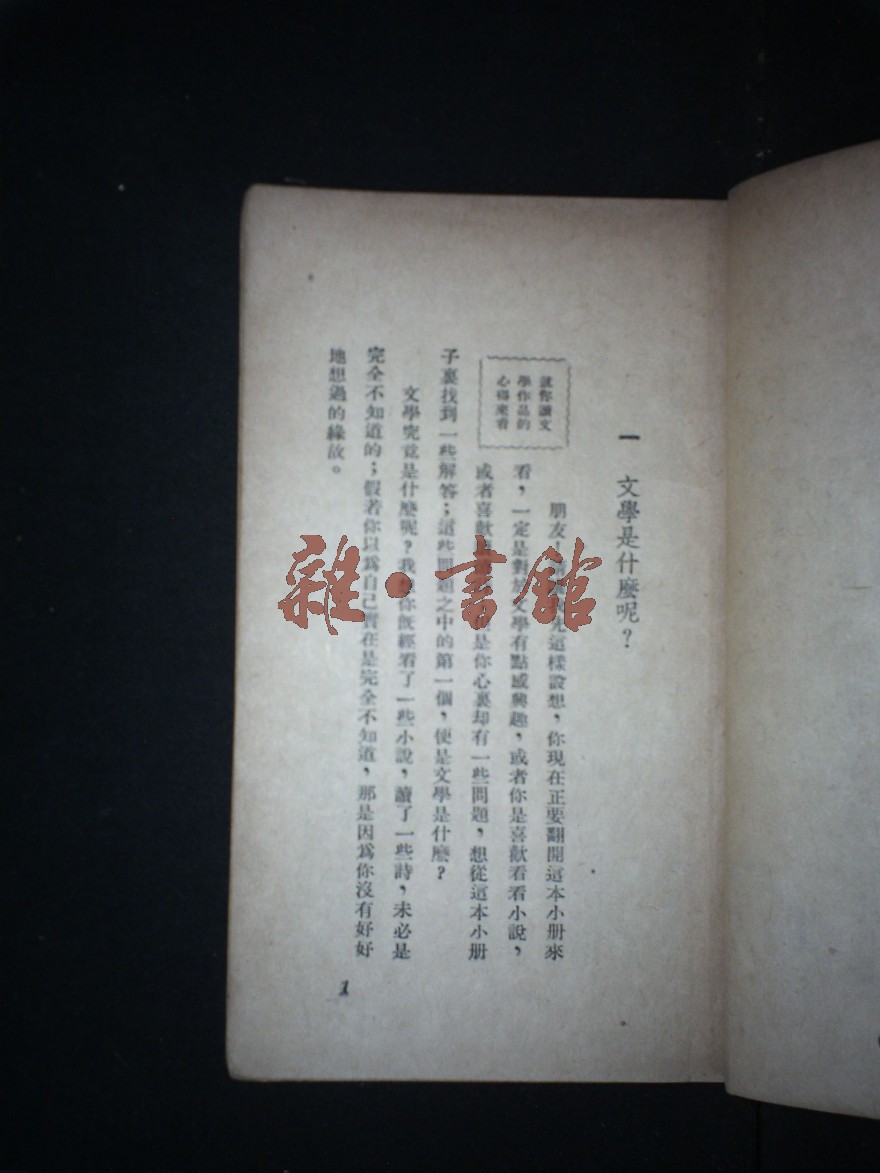 一 文學是什麼呢？
就你讀文
學作品的
心得來看
朋友，這樣設想，你現在正要翻開這本小册來
看，一定是對於文學有點感興趣，或者你是喜歡看看小說，
或者喜歡是你心裏却有一些問題，想從這本小册
子裏找到一些解答；這些問題之中的第一個，便是文學是什麼？
文學究竟是什麼呢？我你既經看了一些小說，讀了一些詩，未必是
完全不知道的；假若你以爲自己實在是完全不知道，那是因爲你沒有好好
地想過的緣故。
1
雜·書館